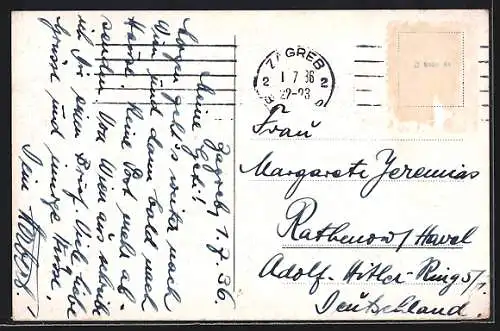 Zagreb, 1.7.36
Meine Geli!
Morgen geht's weiter nach
Wien und dann bald nach
Hause. Keine Post mehr ab-
senden. Von Wien aus schreib
ich Dir einen Brief. Viele liebe
Grüsse und innige Küsse.
Dein
ZAGREB 2
2 1 7 36
22-23
Frau
Margarete Jeremias
Rathenow/Havel
Adolf-Hitler-Ring 5/I
Deutschland.